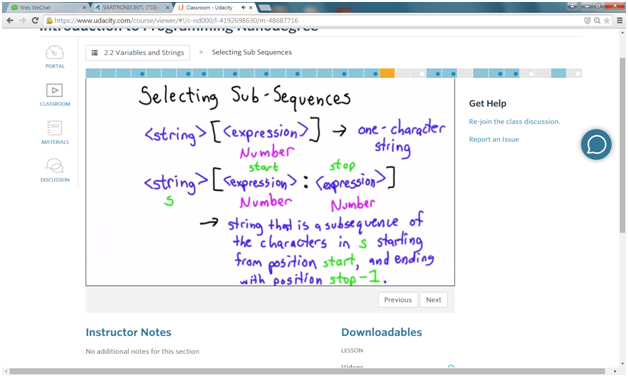 Web WeChat
VARITRONIX INTL (710)
Classroom - Udacity
https://www.udacity.com/course/viewer/#!/c-nd000/l-4192698630/m-48687716
Introduction to Programming Nanodegree
2.2 Variables and Strings > Selecting Sub Sequences
PORTAL
CLASSROOM
MATERIALS
DISCUSSION
Selecting Sub-Sequences
<string>[<expression>] → one-character
string
Number
start stop
<string>[<expression>:<expression>]
s Number Number
→ string that is a subsequence of
the characters in s starting
from position start, and ending
with position stop-1.
Get Help
Re-join the class discussion.
Report an Issue
Previous Next
Instructor Notes
No additional notes for this section
Downloadables
LESSON
Videos